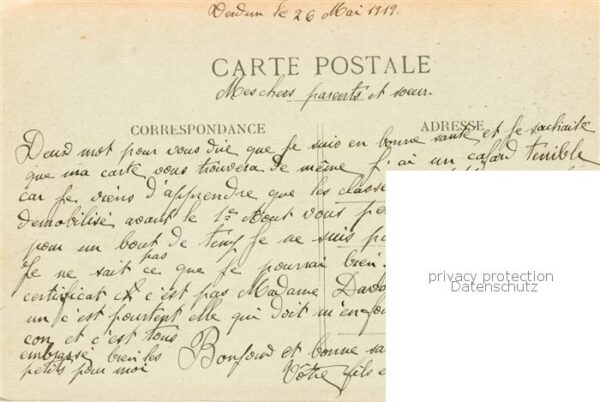 Verdun le 26 Mai 1919.
CARTE POSTALE
Mes chers parents et soeur.
CORRESPONDANCE
ADRESSE
Deux mot pour vous dire que je suis en bonne santé et je souhaite
que ma carte vous trouvera de même j'ai un cafard terrible
car je viens d'apprendre que les classe
demobilisé avant le 1er Aout vous
pour un bout de temp je ne suis
je ne sait pas ce que je pourrai bien
certificat c'est pas Madame
un c'est pourtent elle qui doit
con et c'est tous
embrassé bien les
petits pour moi
Bonjour et bonne
Votre fils
privacy protection
Datenschutz